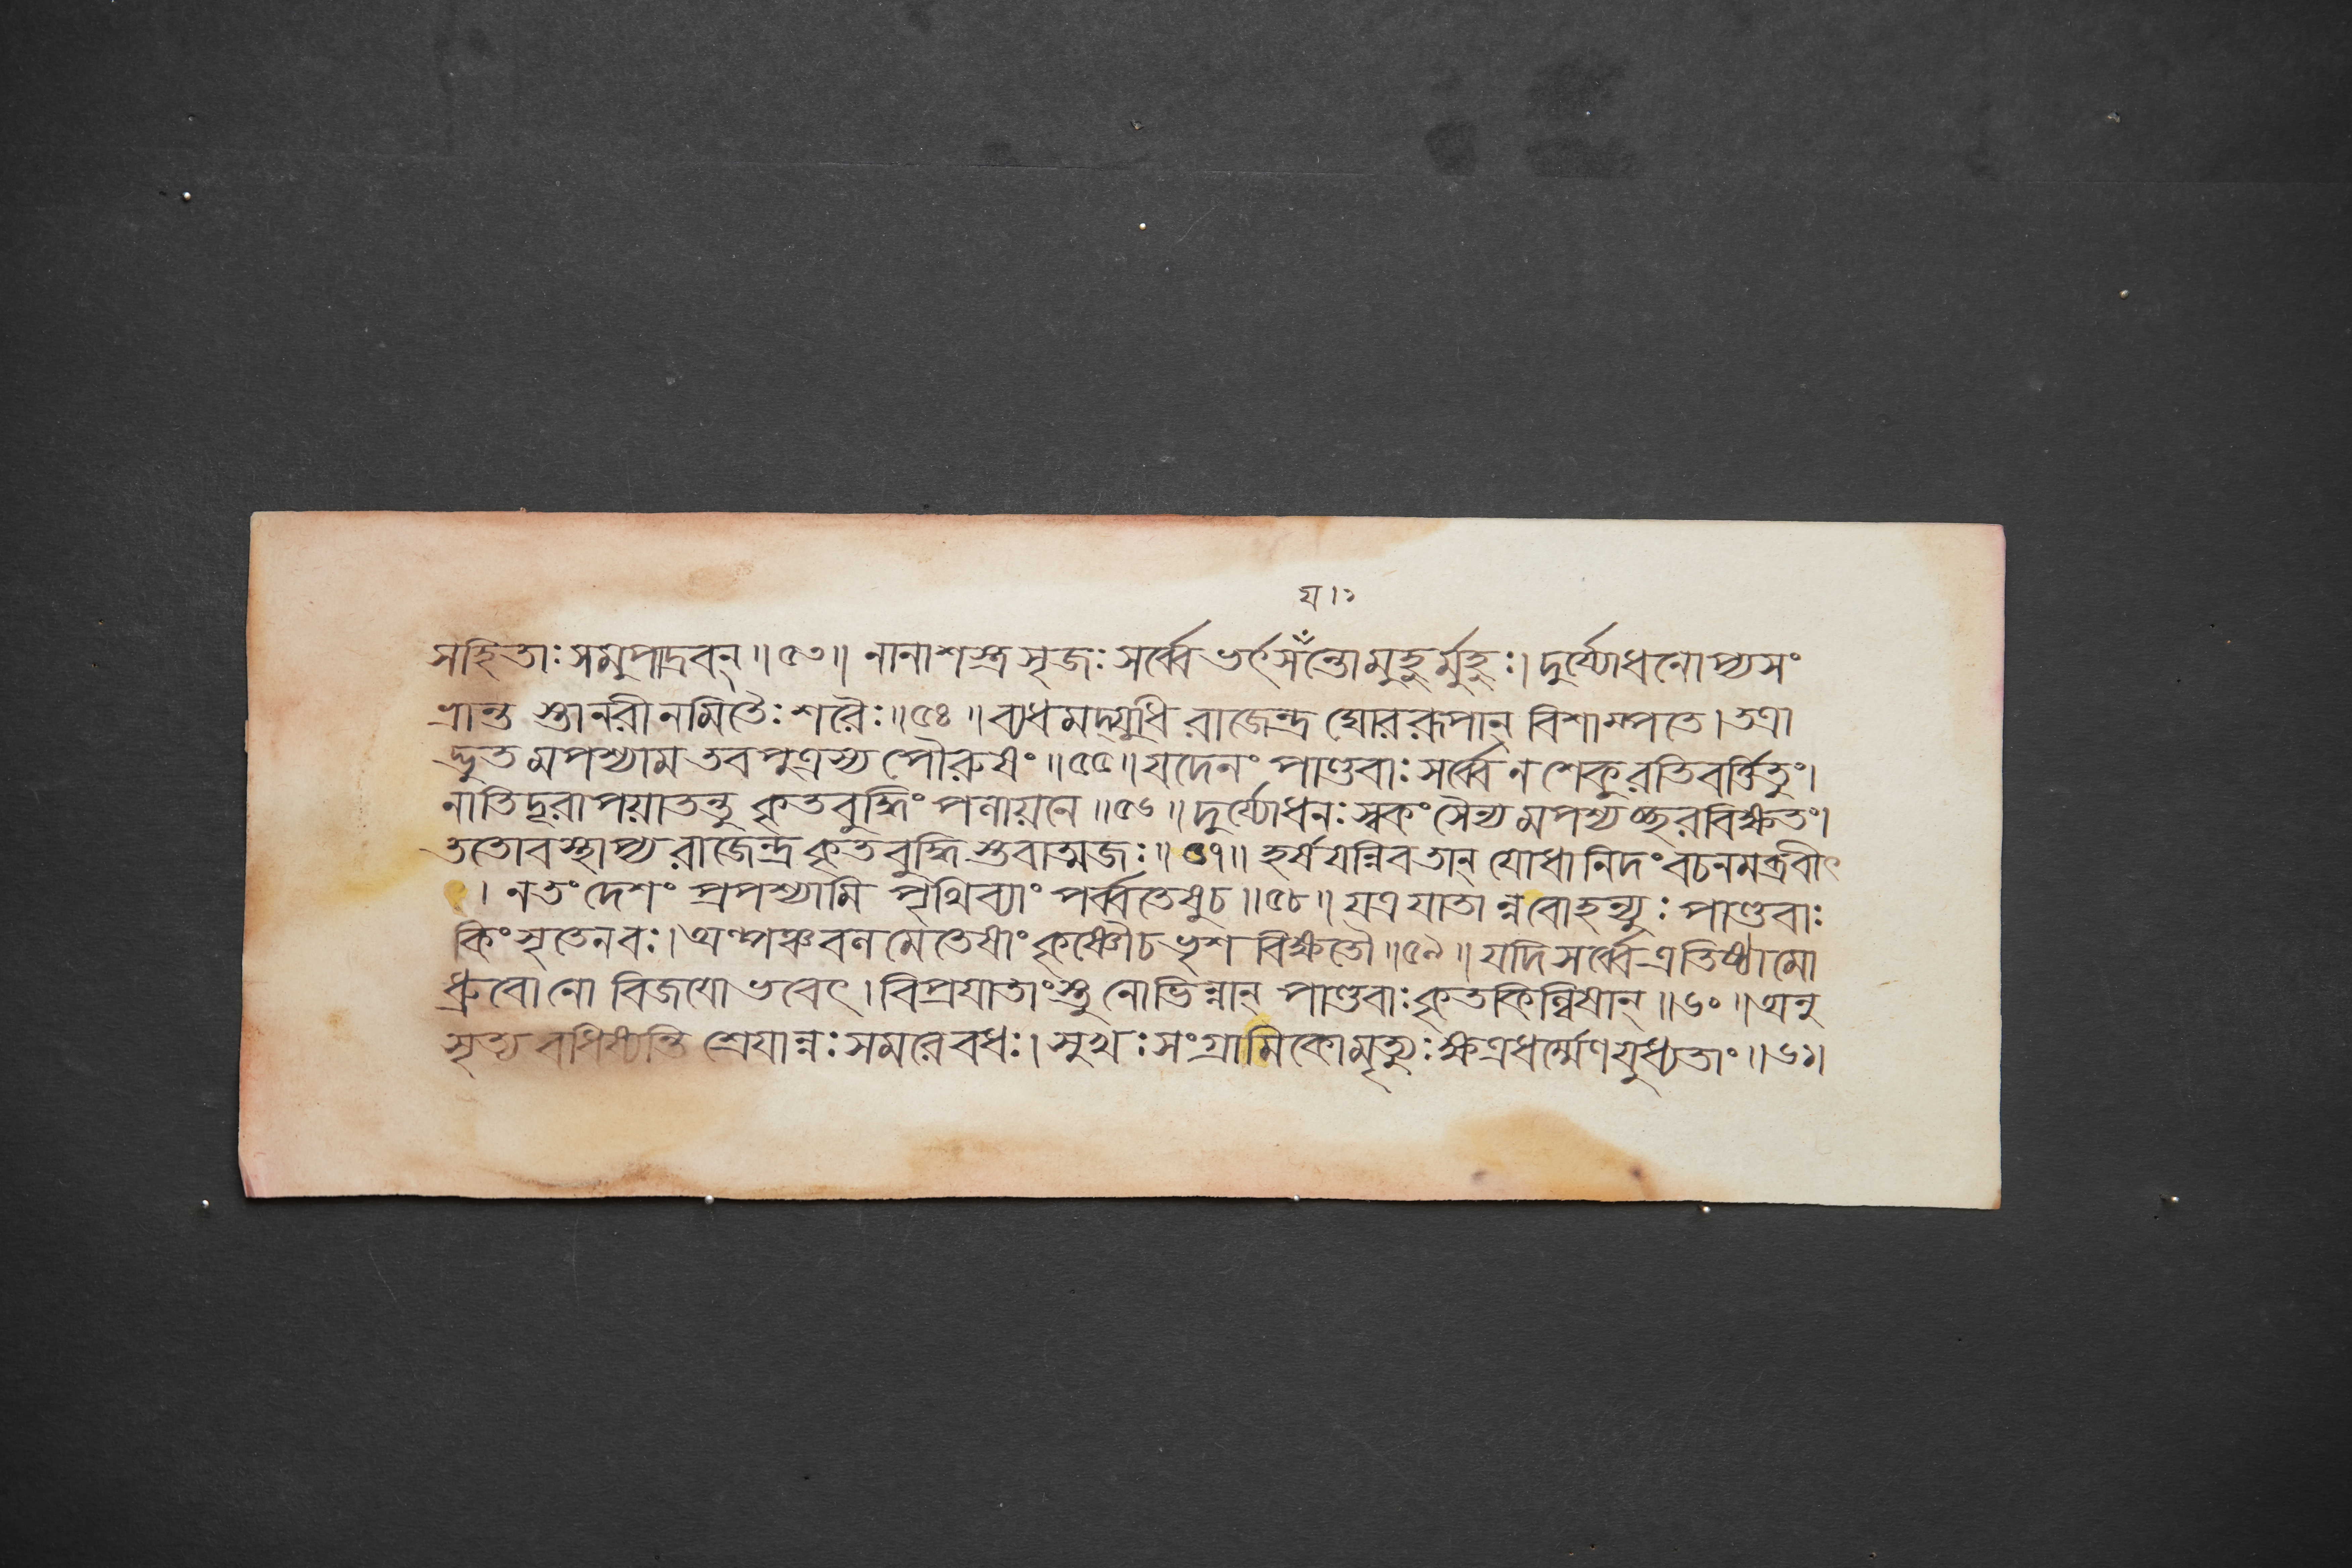 য।১
সহিতাঃ সমুপাদ্রবন্॥৫৩॥ নানাশস্ত্রসৃজঃ সর্ব্বে ভর্ৎসন্তোমুহুর্মুহুঃ। দুর্য্যোধনোপ্যসং
ভ্রান্ত স্তানরীনমিতৈঃ শরৈঃ॥৫৪॥ ব্যধমদ্যুধি রাজেন্দ্র ঘোররূপান্ বিশাম্পতে। তত্রা
দ্ভুতমপশ্যাম তবপুত্রস্য পৌরুষং॥৫৫॥ যদেনং পাণ্ডবাঃ সর্ব্বে ন শেকুরতিবর্ত্তিতুং।
নাতিদূরাপয়াতন্তু কৃতবুদ্ধিং পলায়নে॥৫৬॥ দুর্য্যোধনঃ স্বকং সৈন্য মপশ্যচ্ছরবিক্ষতং।
ততোবস্থাপ্য রাজেন্দ্র কৃতবুদ্ধি স্তবাত্মজঃ॥৫৭॥ হর্ষয়ন্নিবতান্ যোধানিদং বচনমব্রবীৎ
। নতং দেশং প্রপশ্যামি পৃথিব্যাং পর্ব্বতেষুচ॥৫৮॥ যত্র যাতান্নবোহন্যুঃ পাণ্ডবাঃ
কিং সৃতেনবঃ। অল্পঞ্চবলমেতেষাং কৃষ্ণৌচ ভৃশ বিক্ষতৌ॥৫৯॥ যদি সর্ব্বেত্রতিষ্ঠামো
ধ্রুবোনো বিজয়ো ভবেৎ। বিপ্রযাতাংস্তু নোভিন্নান্ পাণ্ডবাঃ কৃতকিল্বিষান্॥৬০॥ অনু
সৃত্য বধিষ্যন্তি শ্রেয়ান্নঃ সমরেবধঃ। সুখঃ সংগ্রামিকোমৃত্যুঃ ক্ষত্রধর্ম্মেণযুধ্যতাং॥৬১।